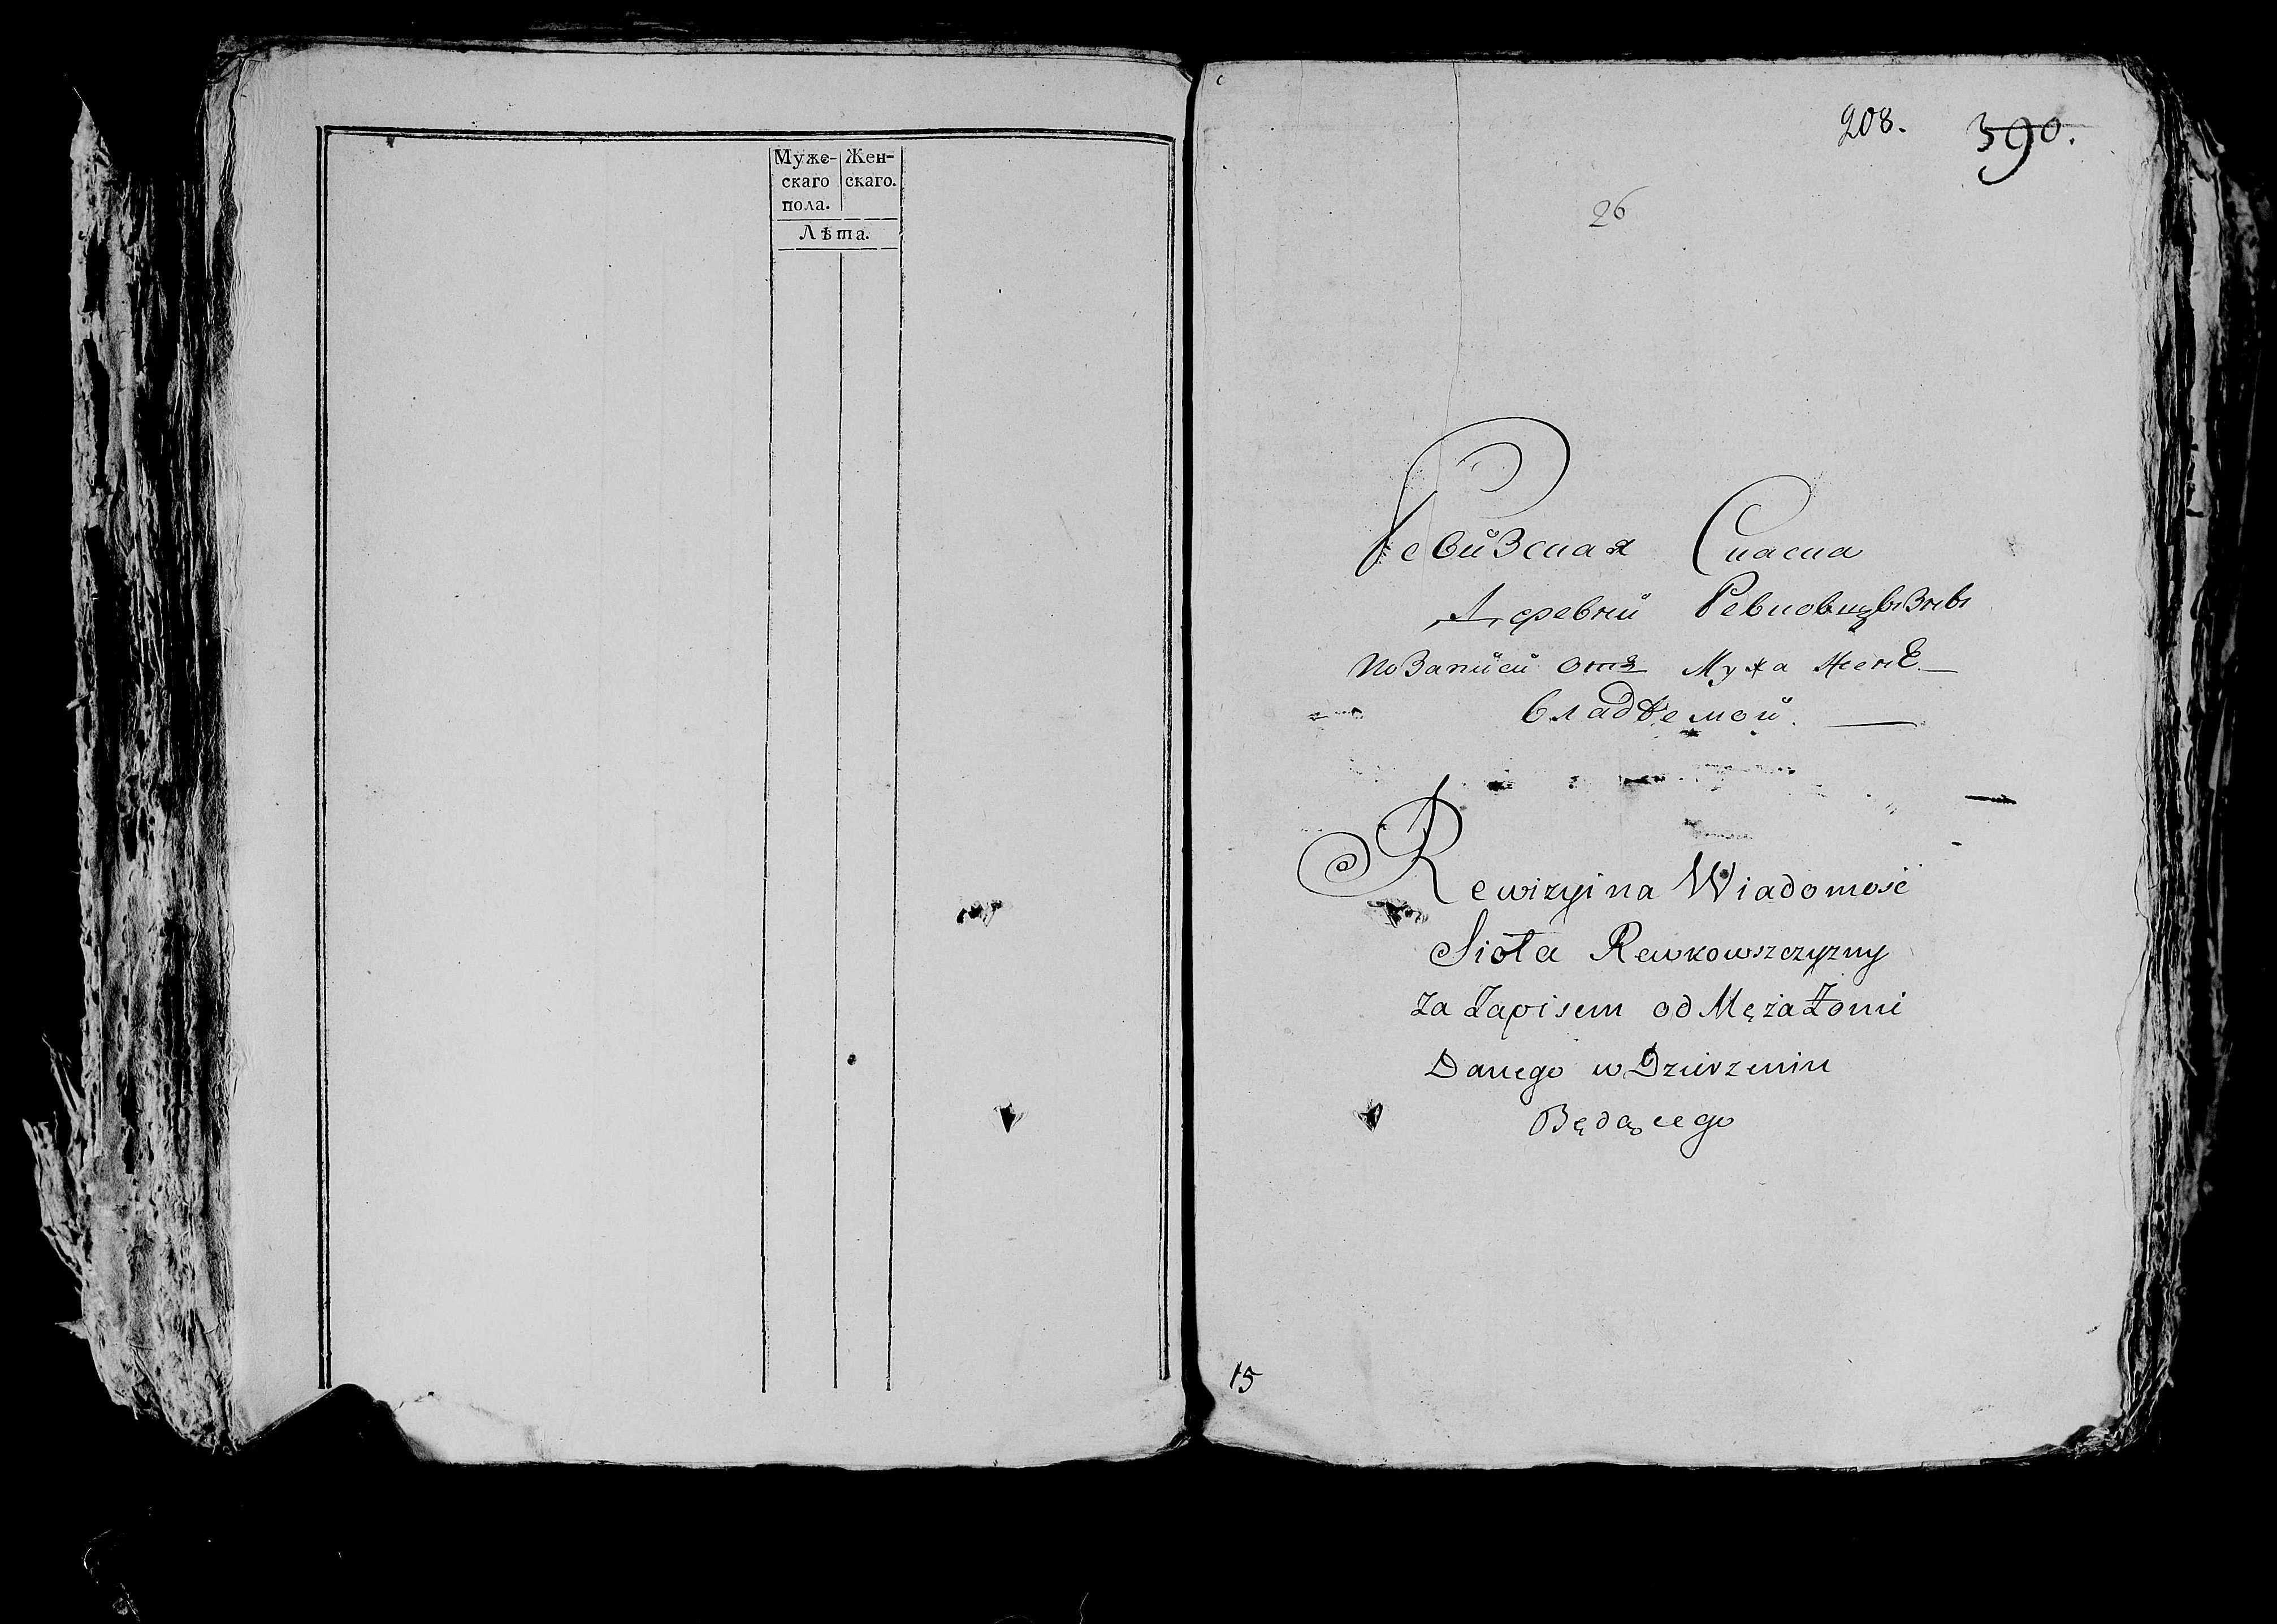 Муже- Жен-
скаго скаго.
пола.
Лѣта.
208. 390.
26
Ревизская Сказка
Деревни Ревковщызны
по Записи отъ Мужа Женѣ
владѣемой.
Rewizyina Wiadomość
Sioła Rewkowszczyzny
za Zapisem od Męża Żonie
Danego w Dzierżeniu
Będącego
15